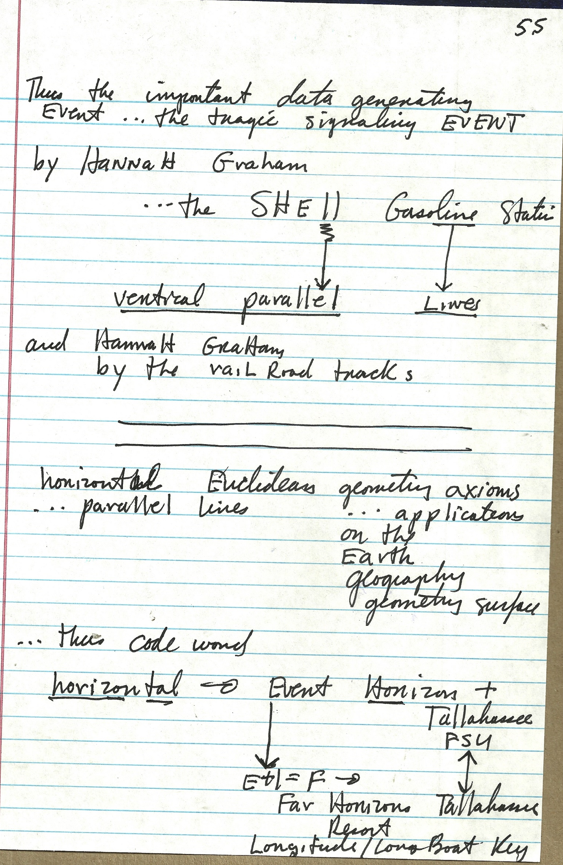 55
Thus the important data generating
Event ... the tragic signaling EVENT
by HANNAH Graham
... the SHEll Gasoline Statio
ventrical parallel Lines
and HannaH GraHam
by the raiL Road tracks
horizontal Euclidean geometry axioms
... parallel lines ... applications
on the
Earth
geography
geometry surface
... thus code word
horizontal → Event Horizon +
Tallahassee
FSU
E+1 = F →
Far Horizons Tallahassee
Resort
Longitude/Long Boat Key